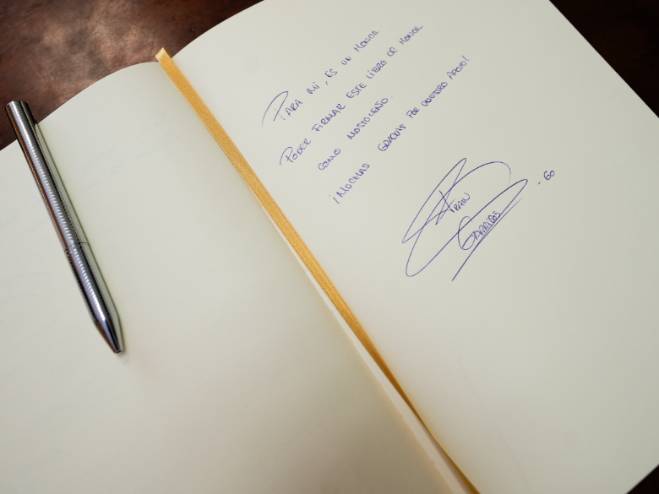 PARA MÍ, ES UN HONOR
PODER FIRMAR ESTE LIBRO DE HONOR
COMO MOSTOLEÑO.
¡MUCHAS GRACIAS POR VUESTRO APOYO!
GARRIDO